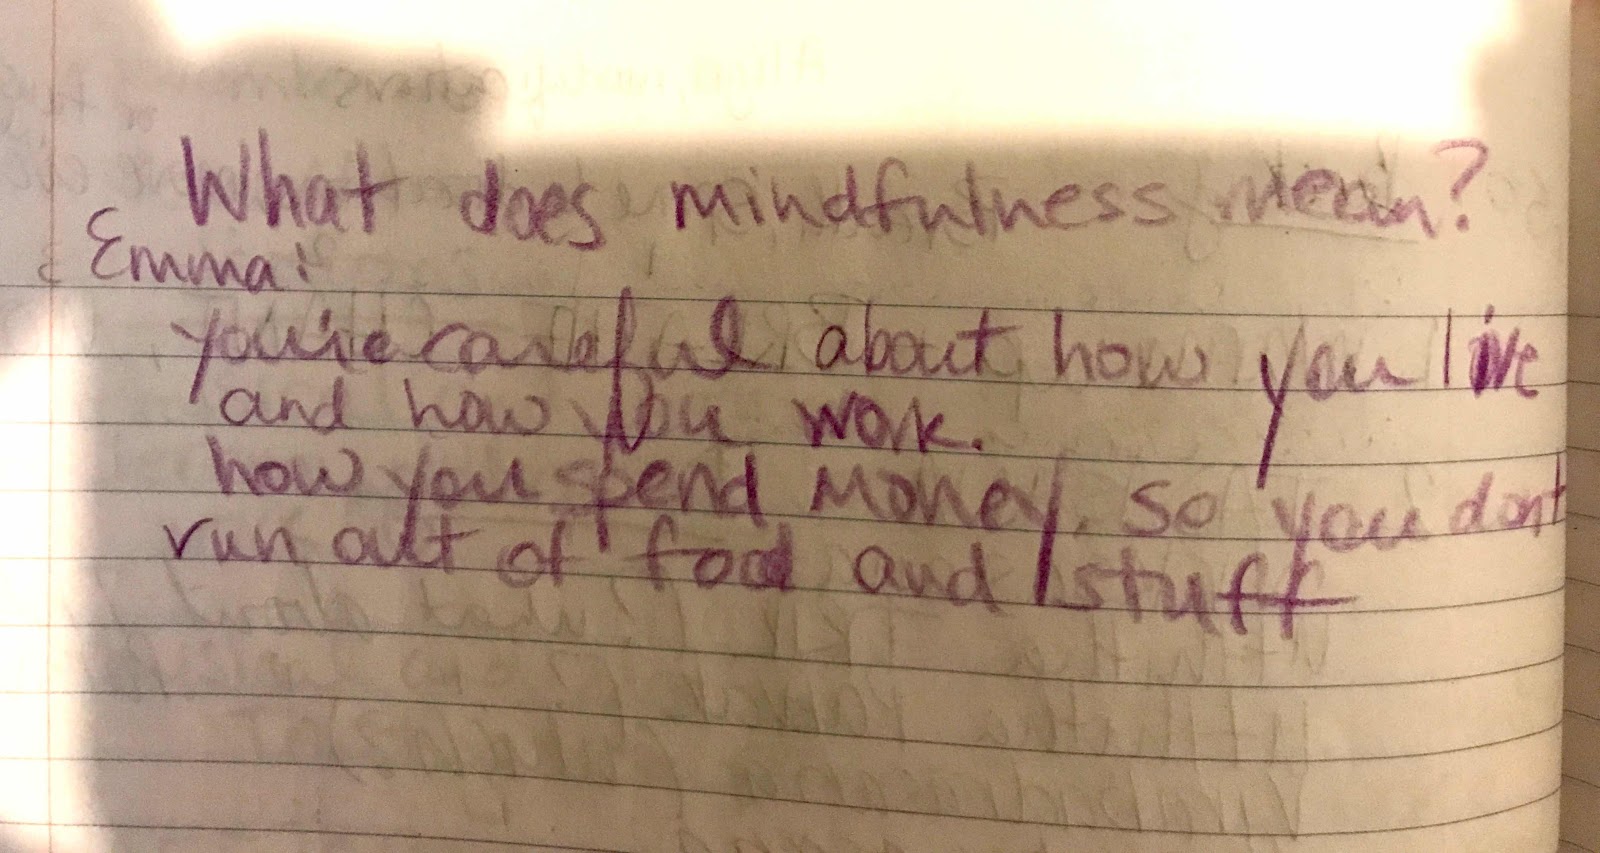 What does mindfulness mean?
Emma:
you're careful about how you live
and how you work.
how you spend money, so you dont
run out of food and stuff